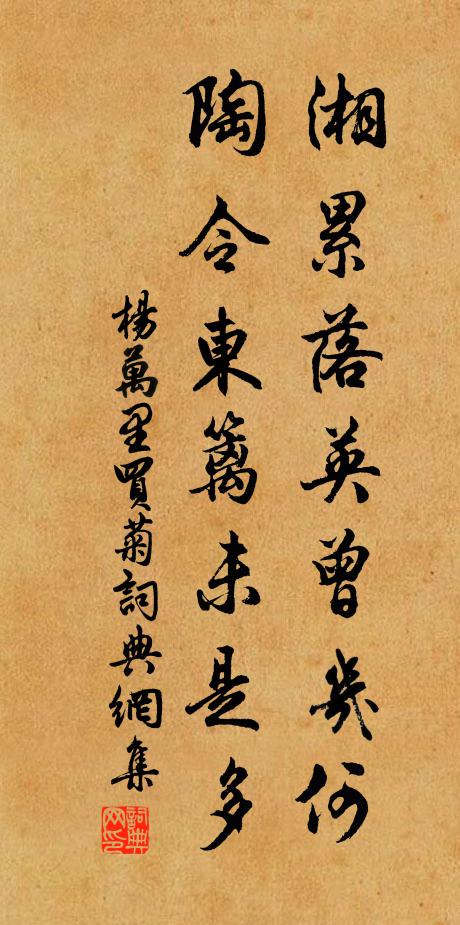 湘累落英曾幾何
陶令東籬未是多
楊萬里買菊詞典網集
詞典网印